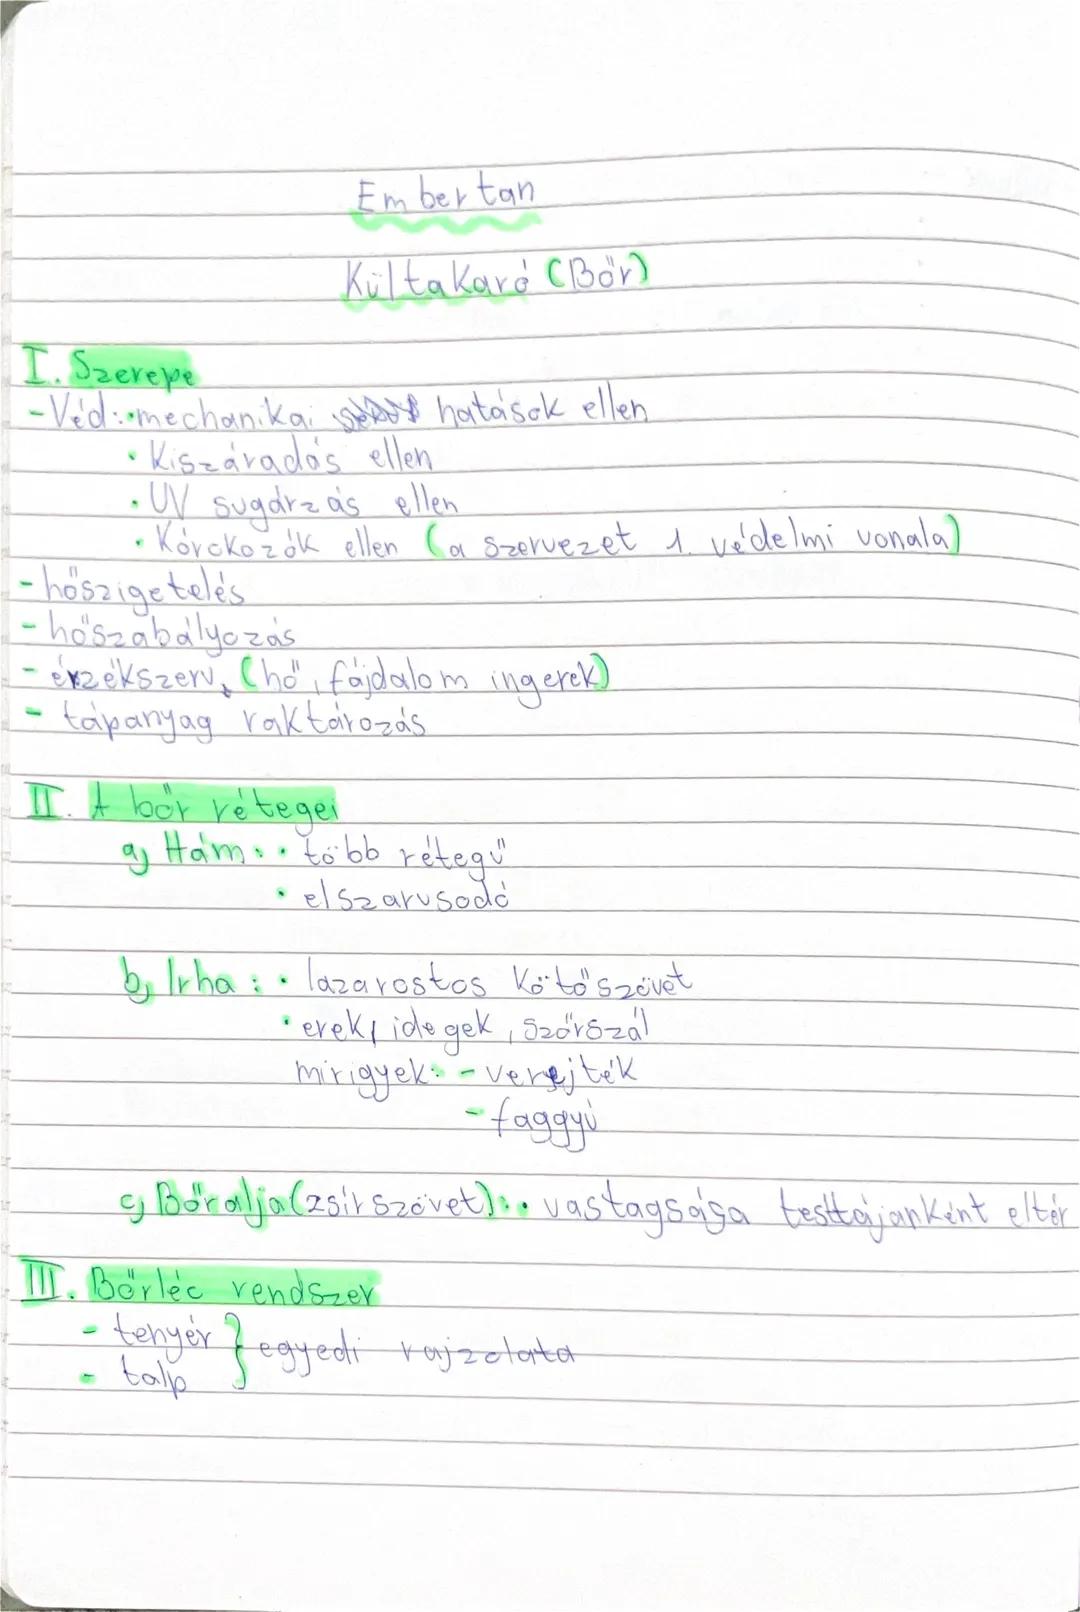 Embertan
Kültakaró (Bőr)
I. Szerepe
- Véd: • mechanikai hatások ellen
• Kiszáradás ellen
• UV sugárzás ellen
• Kórokozók ellen (a szervezet 1. védelmi vonala)
- hőszigetelés
- hőszabályozás
- érzékszerv, (hő, fájdalom ingerek)
- tápanyag raktározás
II. A bőr rétegei
a, Hám: • több rétegű
• elszarusodó
b, Irha: • lazarostos Kötőszövet
• erek, idegek, szőrszál
mirigyek: - verejték
- faggyú
c, Bőralja (zsírszövet): • vastagsága testtájanként eltér
III. Bőrléc rendszer
- tenyér } egyedi rajzolata
- talp